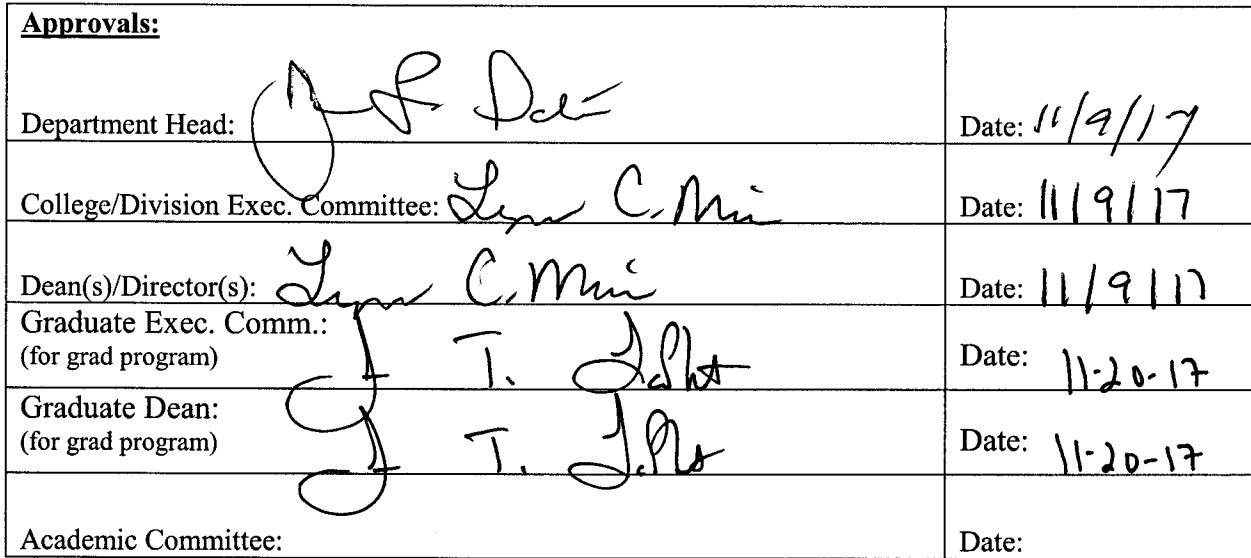 Approvals:
Department Head: Date: 11/9/17
College/Division Exec. Committee: Lynn C. Date: 11/9/17
Dean(s)/Director(s): Lynn C. Date: 11/9/17
Graduate Exec. Comm.:
(for grad program) T. Date: 11-20-17
Graduate Dean:
(for grad program) T. Date: 11-20-17
Academic Committee: Date: